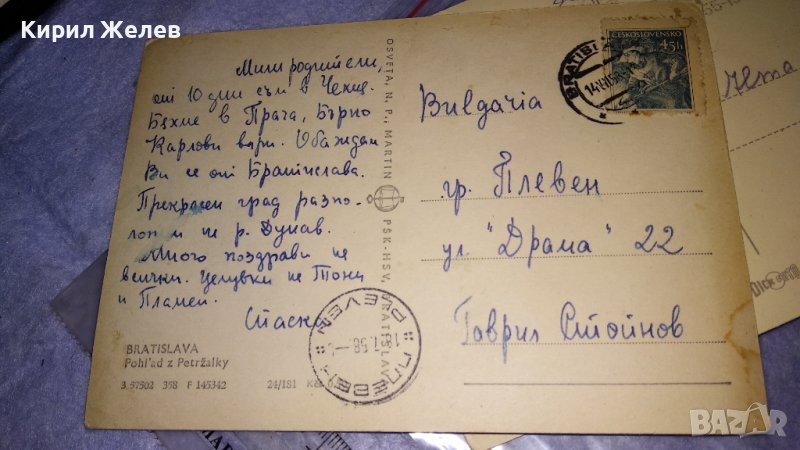 Кирил Желев
Мили родители,
от 10 дни съм в Чехия.
Бяхме в Прага, Бърно
Карлови вари. Обаждам
Ви се от Братислава.
Прекрасен град разпо-
лон и на р. Дунав.
Много поздрави на
всички. Целувки на Тони
и Пламен.
BRATISLAVA
Pohľad z Petržalky
3.57502 358 F 145342
24/181
OSVETA, N. P., MARTIN
PŠK-HSV, BRATISLAVA
ПЛЕВЕН
PLEVEN
58
ČESKOSLOVENSKO
45h
BRATIS
Bulgaria
гр. Плевен
ул. "Драма" 22
Гаврил Стойнов
BAZAR